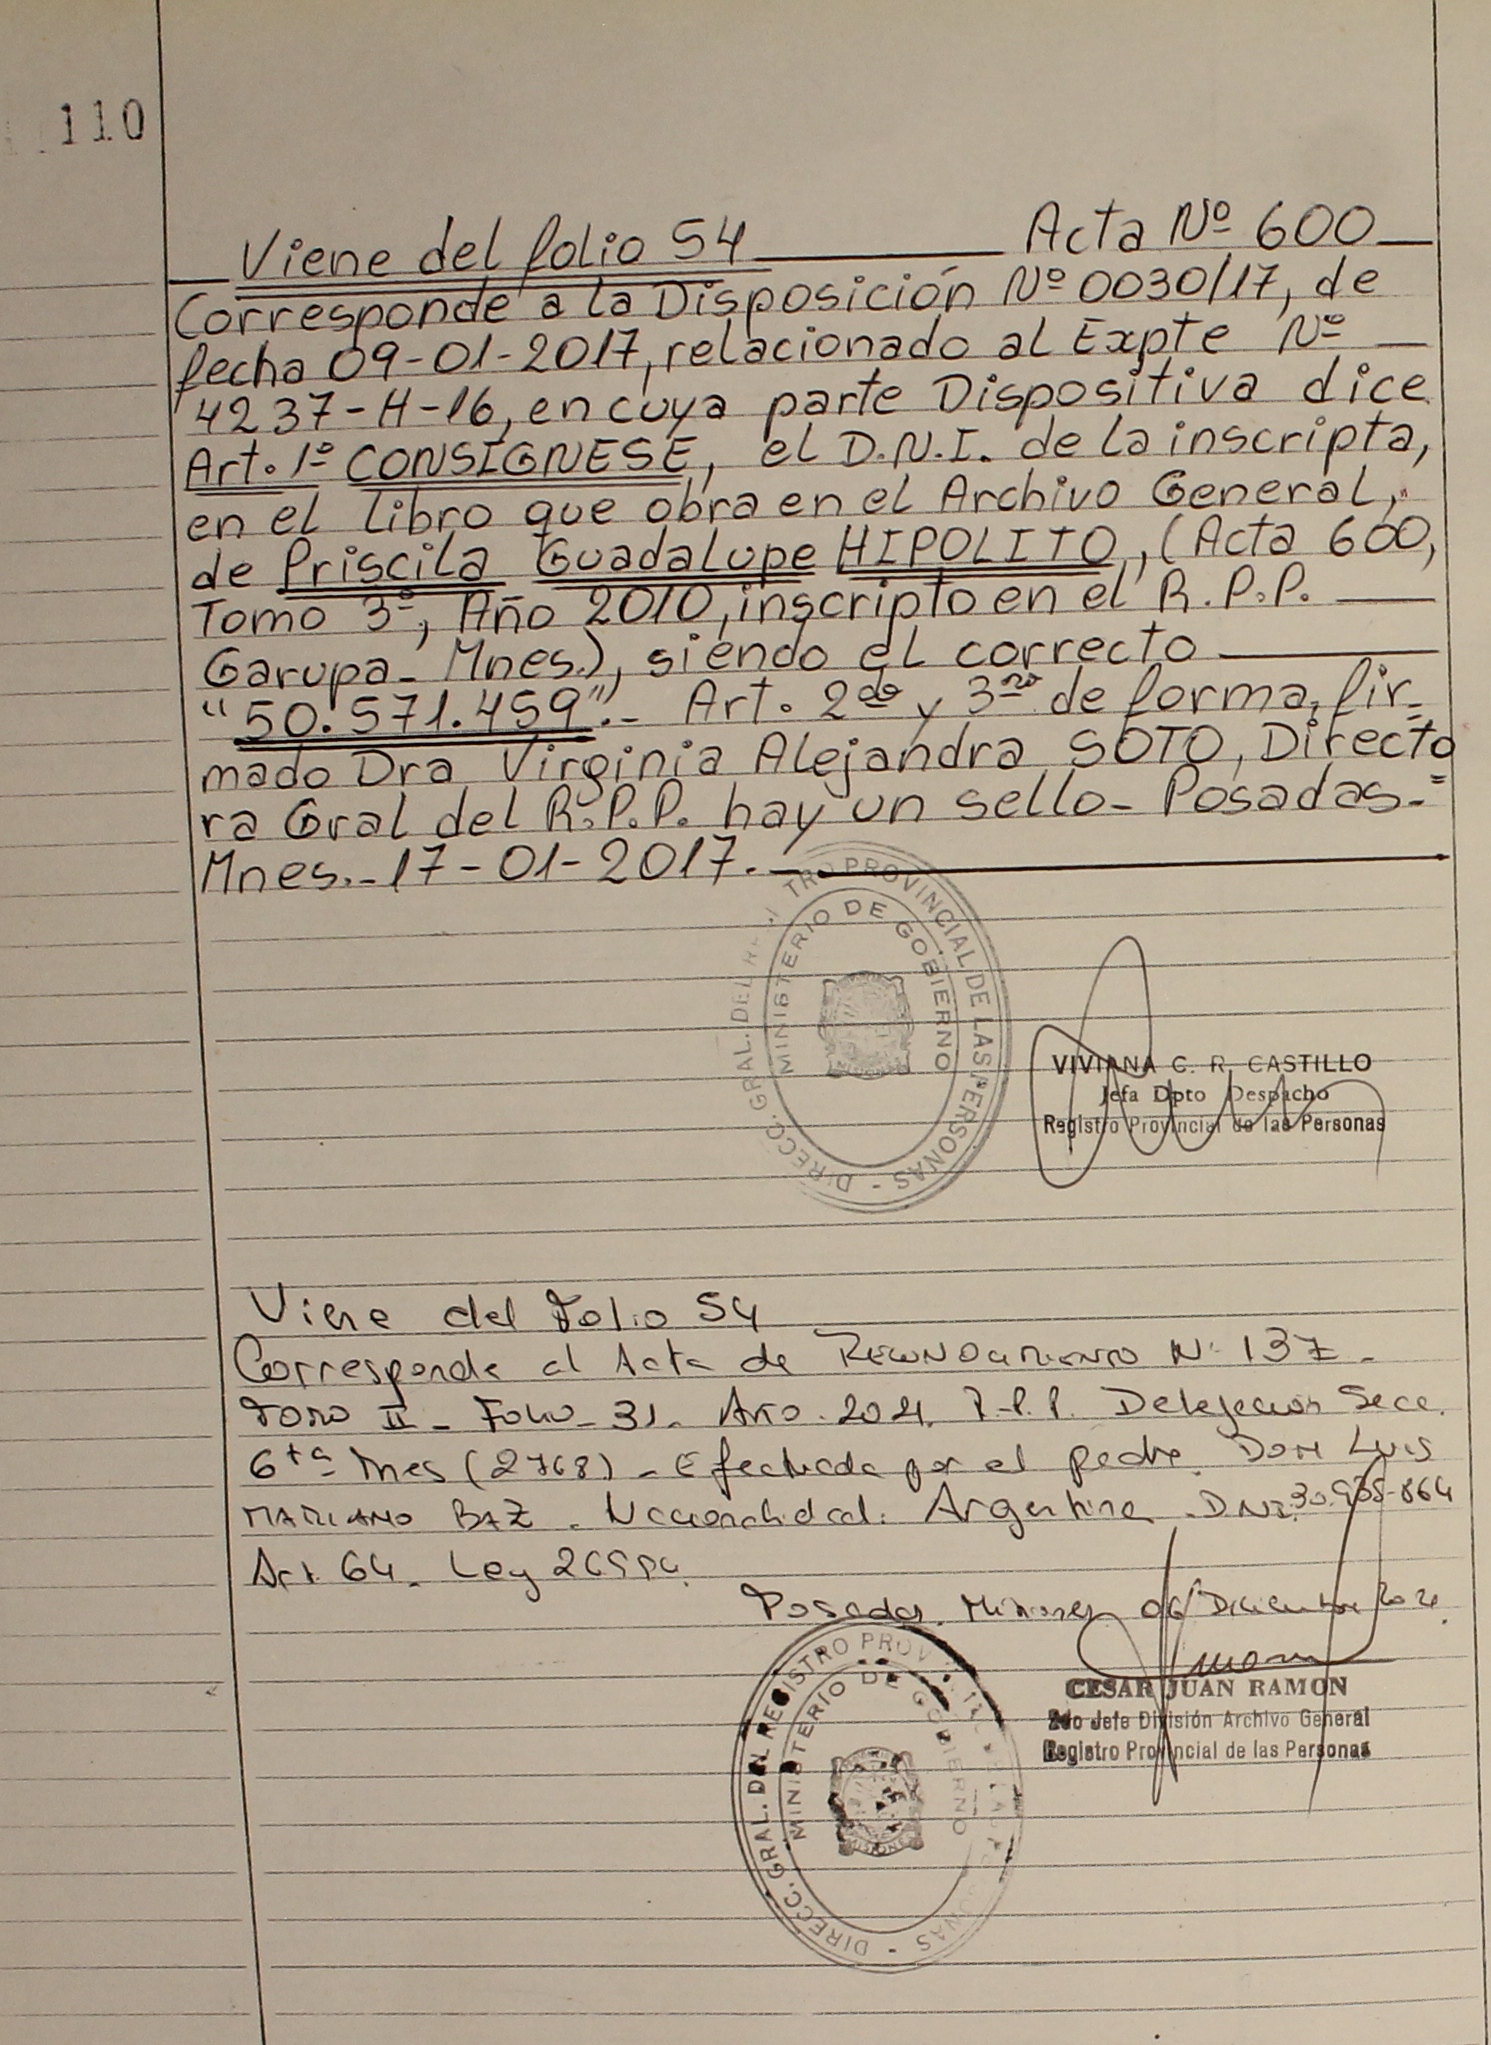 110
Viene del folio 54 Acta Nº 600
Corresponde a la Disposición Nº 0030/17, de
fecha 09-01-2017, relacionado al Expte Nº
4237-H-16, en cuya parte Dispositiva dice
Art. 1º CONSIGNESE, el D.N.I. de la inscripta,
en el libro que obra en el Archivo General,
de Priscila Guadalupe HIPOLITO, (Acta 600,
Tomo 3º, Año 2010, inscripto en el R.P.P.
Garupa - Mnes.), siendo el correcto
"50.571.459".- Art. 2do y 3ro de forma, fir-
mado Dra Virginia Alejandra SOTO, Directo
ra Gral del R.P.P. hay un sello - Posadas.=
Mnes.- 17-01-2017.-
DIRECC. GRAL. DEL REGISTRO PROVINCIAL DE LAS PERSONAS -
MINISTERIO DE GOBIERNO
VIVIANA C. R. CASTILLO
Jefa Dpto Despacho
Registro Provincial de las Personas
Viene del Folio 54
Corresponde al Acta de Reconocimiento Nº 137 -
Tomo II - Folio - 31 - Año . 2021. R.P.P. Delegacion Secc.
6ta Mnes (2768) - Efectuada por el padre. Don Luis
MARIANO BAZ - Nacionalidad. Argentina - DNI. 30.935-864
Art. 64 - Ley 26994.
Posadas, Misiones 06/Diciembre/2021.
DIRECC. GRAL. DEL REGISTRO PROVINCIAL DE LAS PERSONAS -
MINISTERIO DE GOBIERNO
MISIONES
CESAR JUAN RAMON
2do Jefe División Archivo General
Registro Provincial de las Personas